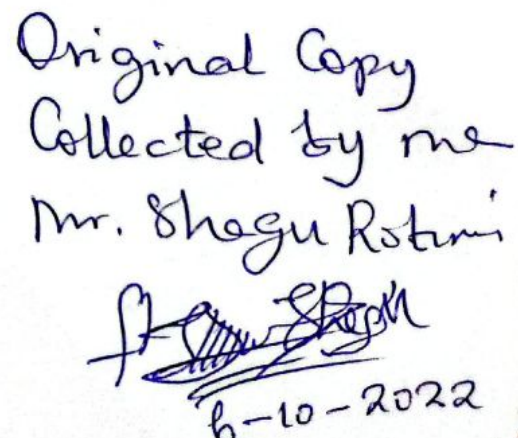 Original Copy
Collected by me
Mr. Shegu Rotimi
6-10-2022